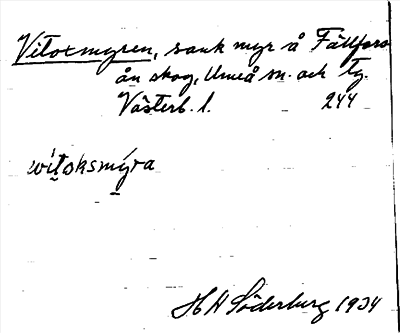 Vitoxmyren, sank myr å Fällfors
ån skog, Umeå sn. och tg.
Västerb. l. 244
witoksmýra
H A Söderburg 1934